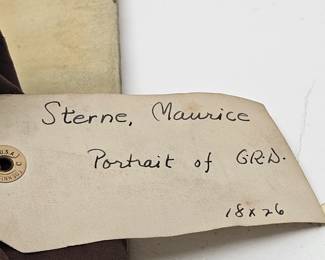 Sterne, Maurice
Portrait of G.R.D.
18 x 26